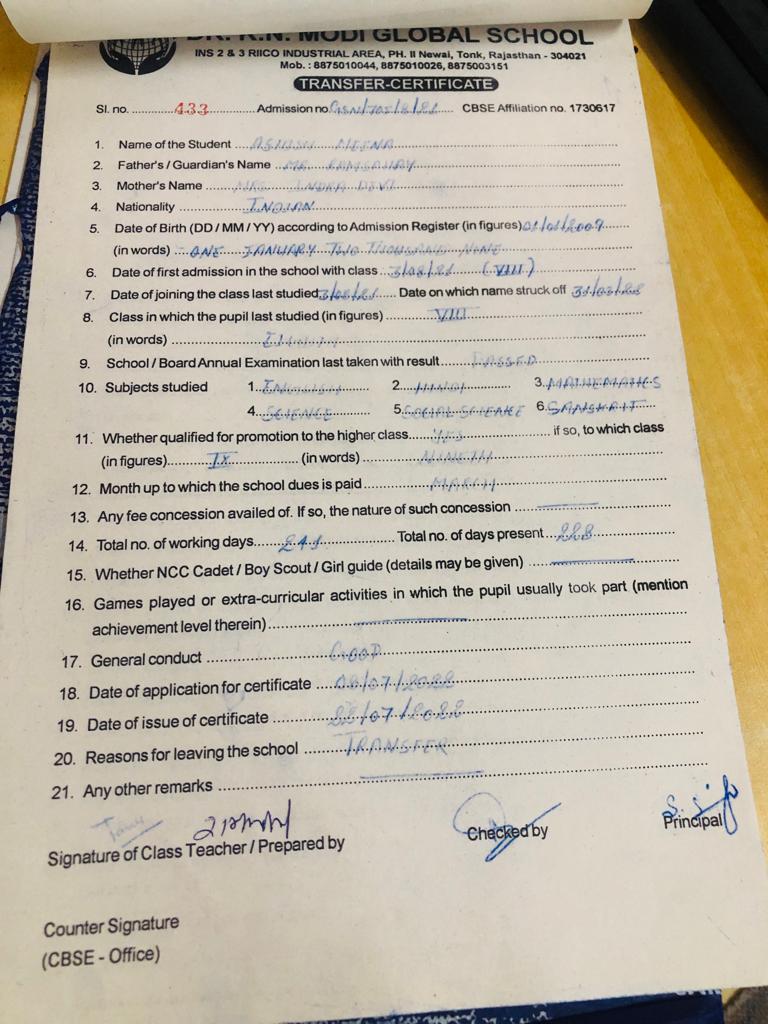 DR. K.N. MODI GLOBAL SCHOOL
INS 2 & 3 RIICO INDUSTRIAL AREA, PH. II Newai, Tonk, Rajasthan - 304021
Mob. : 8875010044, 8875010026, 8875003151
TRANSFER-CERTIFICATE
Sl. no. 433 Admission no. CBSE Affiliation no. 1730617
1. Name of the Student ASHISH MEENA
2. Father's / Guardian's Name MR.
3. Mother's Name MRS. INDRA DEVI
4. Nationality INDIAN
5. Date of Birth (DD / MM / YY) according to Admission Register (in figures) 01/01/2009
(in words) ONE JANUARY TWO THOUSAND NINE
6. Date of first admission in the school with class 3/08/21 (VIII)
7. Date of joining the class last studied 3/08/21 Date on which name struck off 31/03/22
8. Class in which the pupil last studied (in figures) VIII
(in words)
9. School / Board Annual Examination last taken with result PASSED
10. Subjects studied 1. ENGLISH 2. HINDI 3. MATHEMATICS
4. SCIENCE 5. SOCIAL SCIENCE 6. SANSKRIT
11. Whether qualified for promotion to the higher class YES if so, to which class
(in figures) IX (in words) NINETH
12. Month up to which the school dues is paid MARCH
13. Any fee concession availed of. If so, the nature of such concession
14. Total no. of working days 241 Total no. of days present 228
15. Whether NCC Cadet / Boy Scout / Girl guide (details may be given)
16. Games played or extra-curricular activities in which the pupil usually took part (mention
achievement level therein)
17. General conduct GOOD
18. Date of application for certificate
19. Date of issue of certificate 22/07/2022
20. Reasons for leaving the school TRANSFER
21. Any other remarks
Signature of Class Teacher / Prepared by Checked by Principal
Counter Signature
(CBSE - Office)